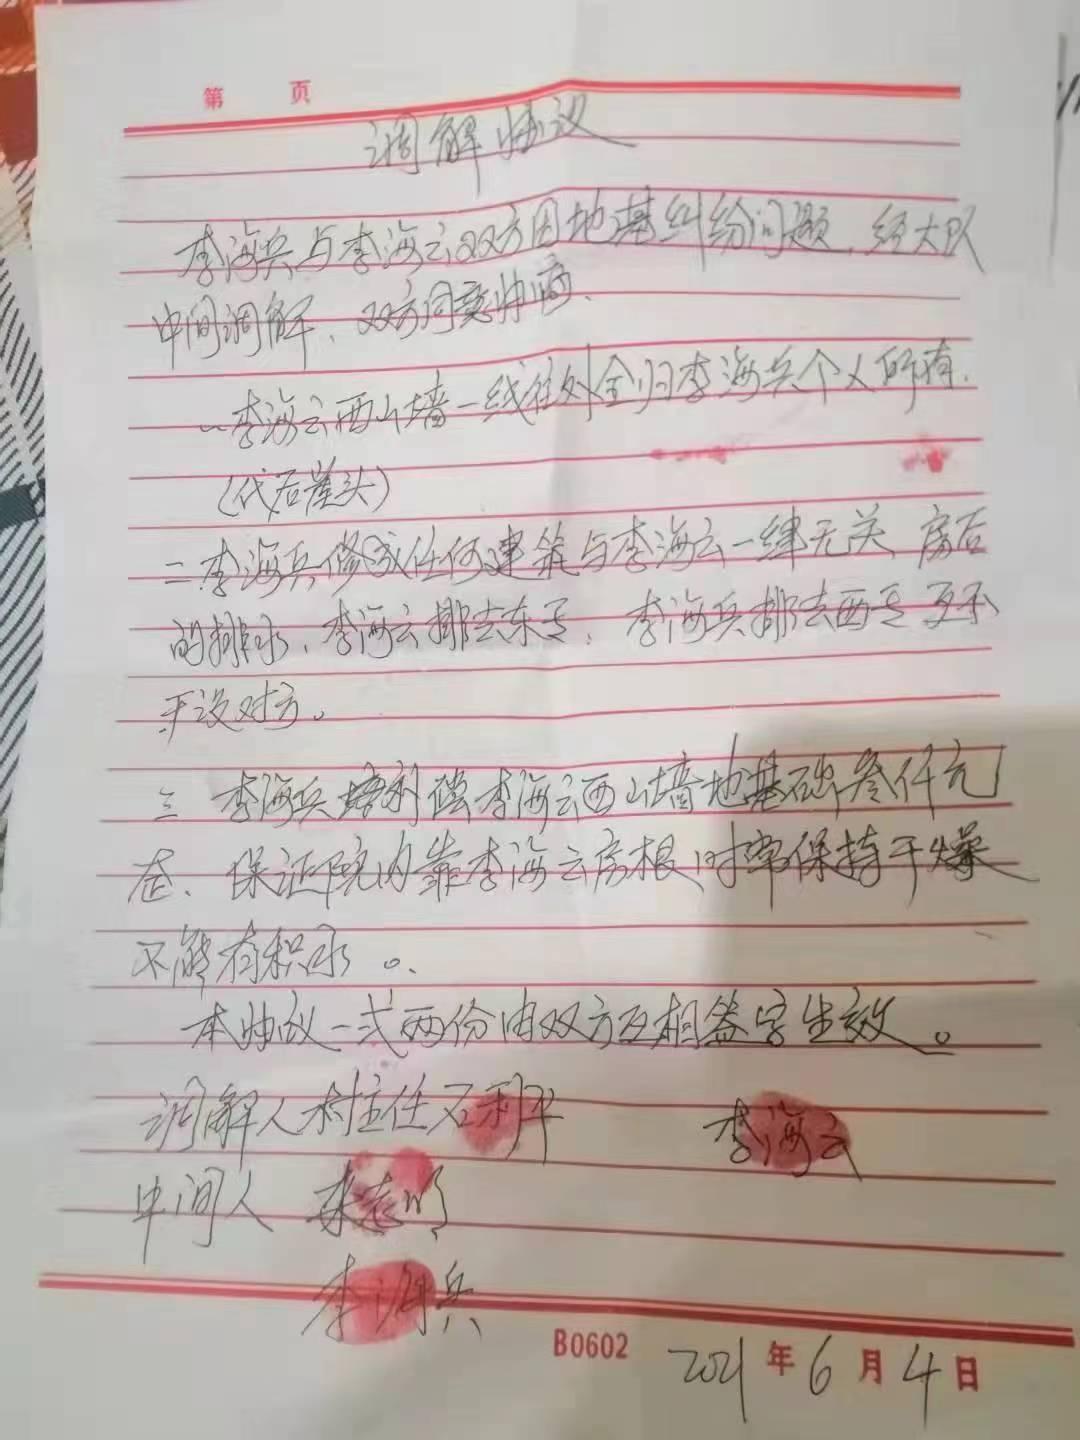 第 页
调解协议
李海兵与李海云双方因地基纠纷问题，经大队
中间调解、双方同意协商、
一李海云西山墙一线往外全归李海兵个人所有.
(代后崖头)
二李海兵修或任何建筑与李海云一律无关 房后
的排水、李海云排去东, 李海兵排去西 互不
干涉对方。
三 李海兵 偿李海云西山墙地基础叁仟元
、保证院内靠李海云房根时常保持干燥
不能有积水。
本协议一式两份由双方互相签字生效。
调解人村主任石利平 李海云
中间人 志明
李海兵
B0602 2021年6月4日